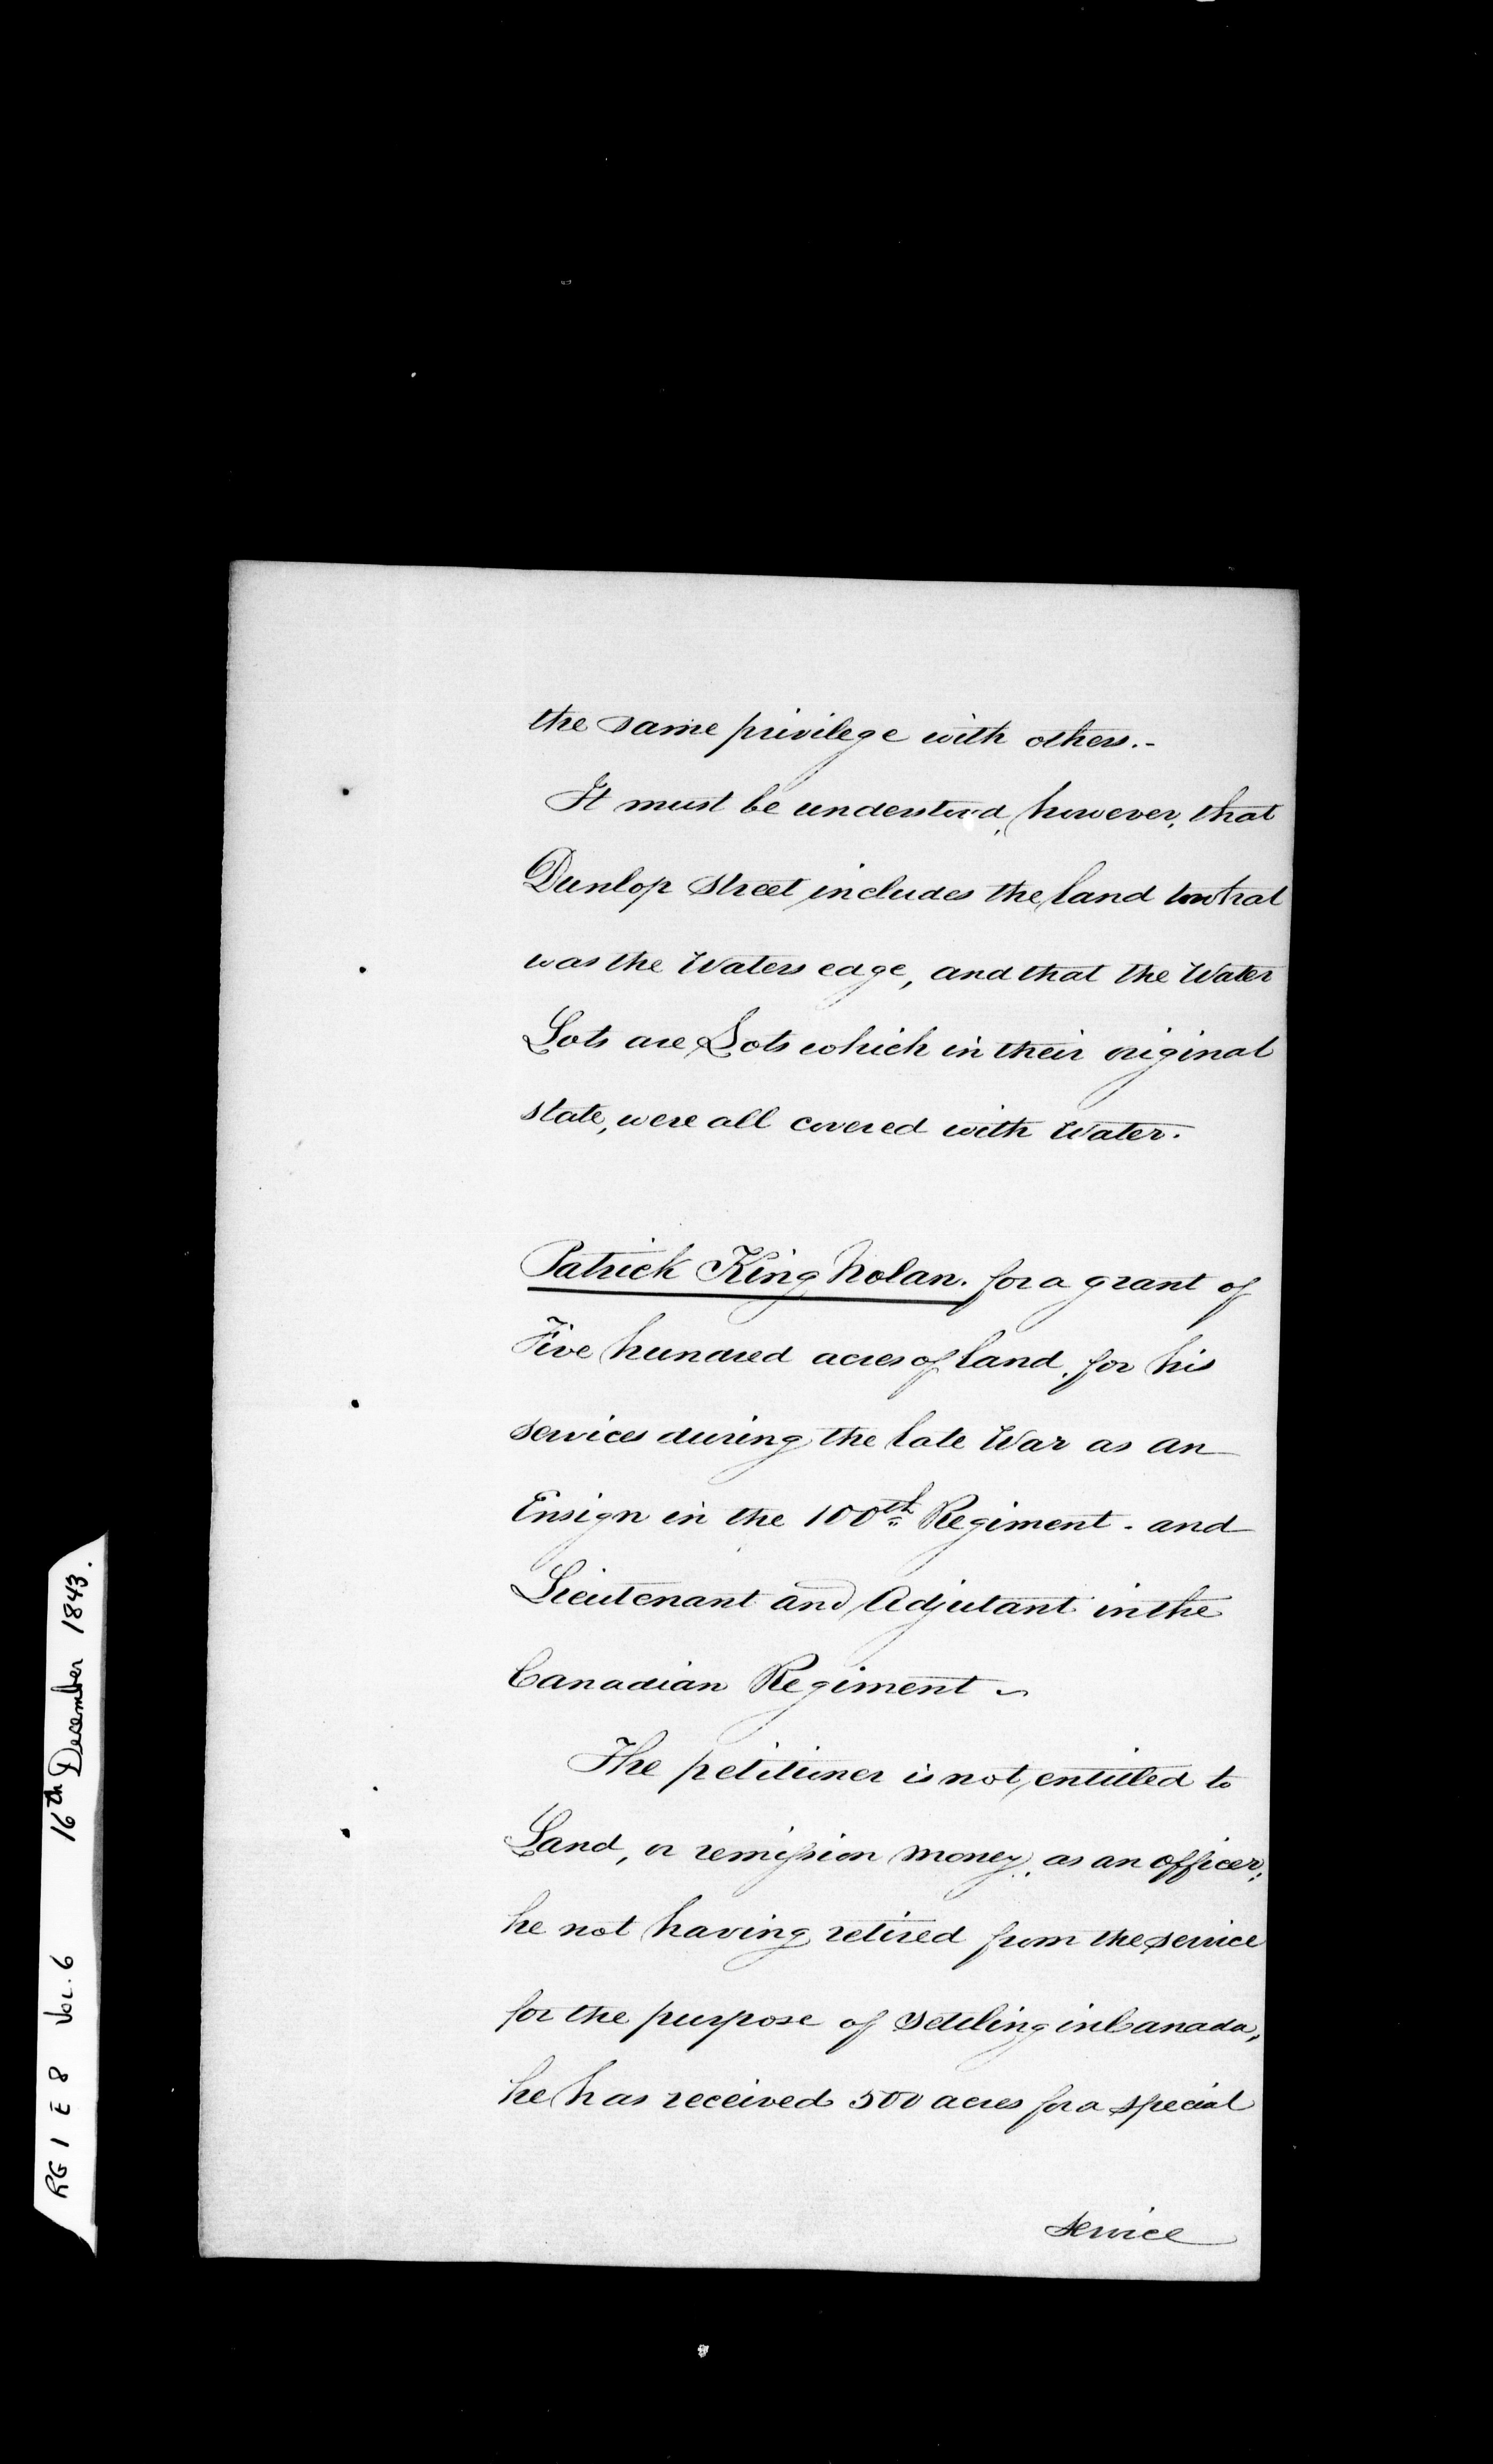 the same privilege with others.-
It must be understood, however, that
Dunlop Street includes the land to what
was the Waters edge, and that the Water
Lots are Lots which in their original
state, were all covered with Water.
Patrick King Nolan. for a grant of
Five hundred acres of land, for his
services during the late War as an
Ensign in the 100th Regiment - and
Lieutenant and Adjutant in the
Canadian Regiment ~
The petitioner is not entitled to
Land, or remission money, as an officer;
he not having retired from the service
for the purpose of settling in Canada,
he has received 500 acres for a special
service
RG 1 E 8 Vol. 6 16th December 1843.